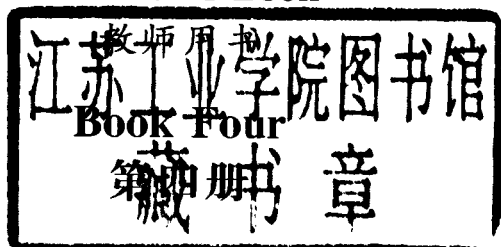 教师用书
江苏工业学院图书馆
Book Four
第四册
藏书章